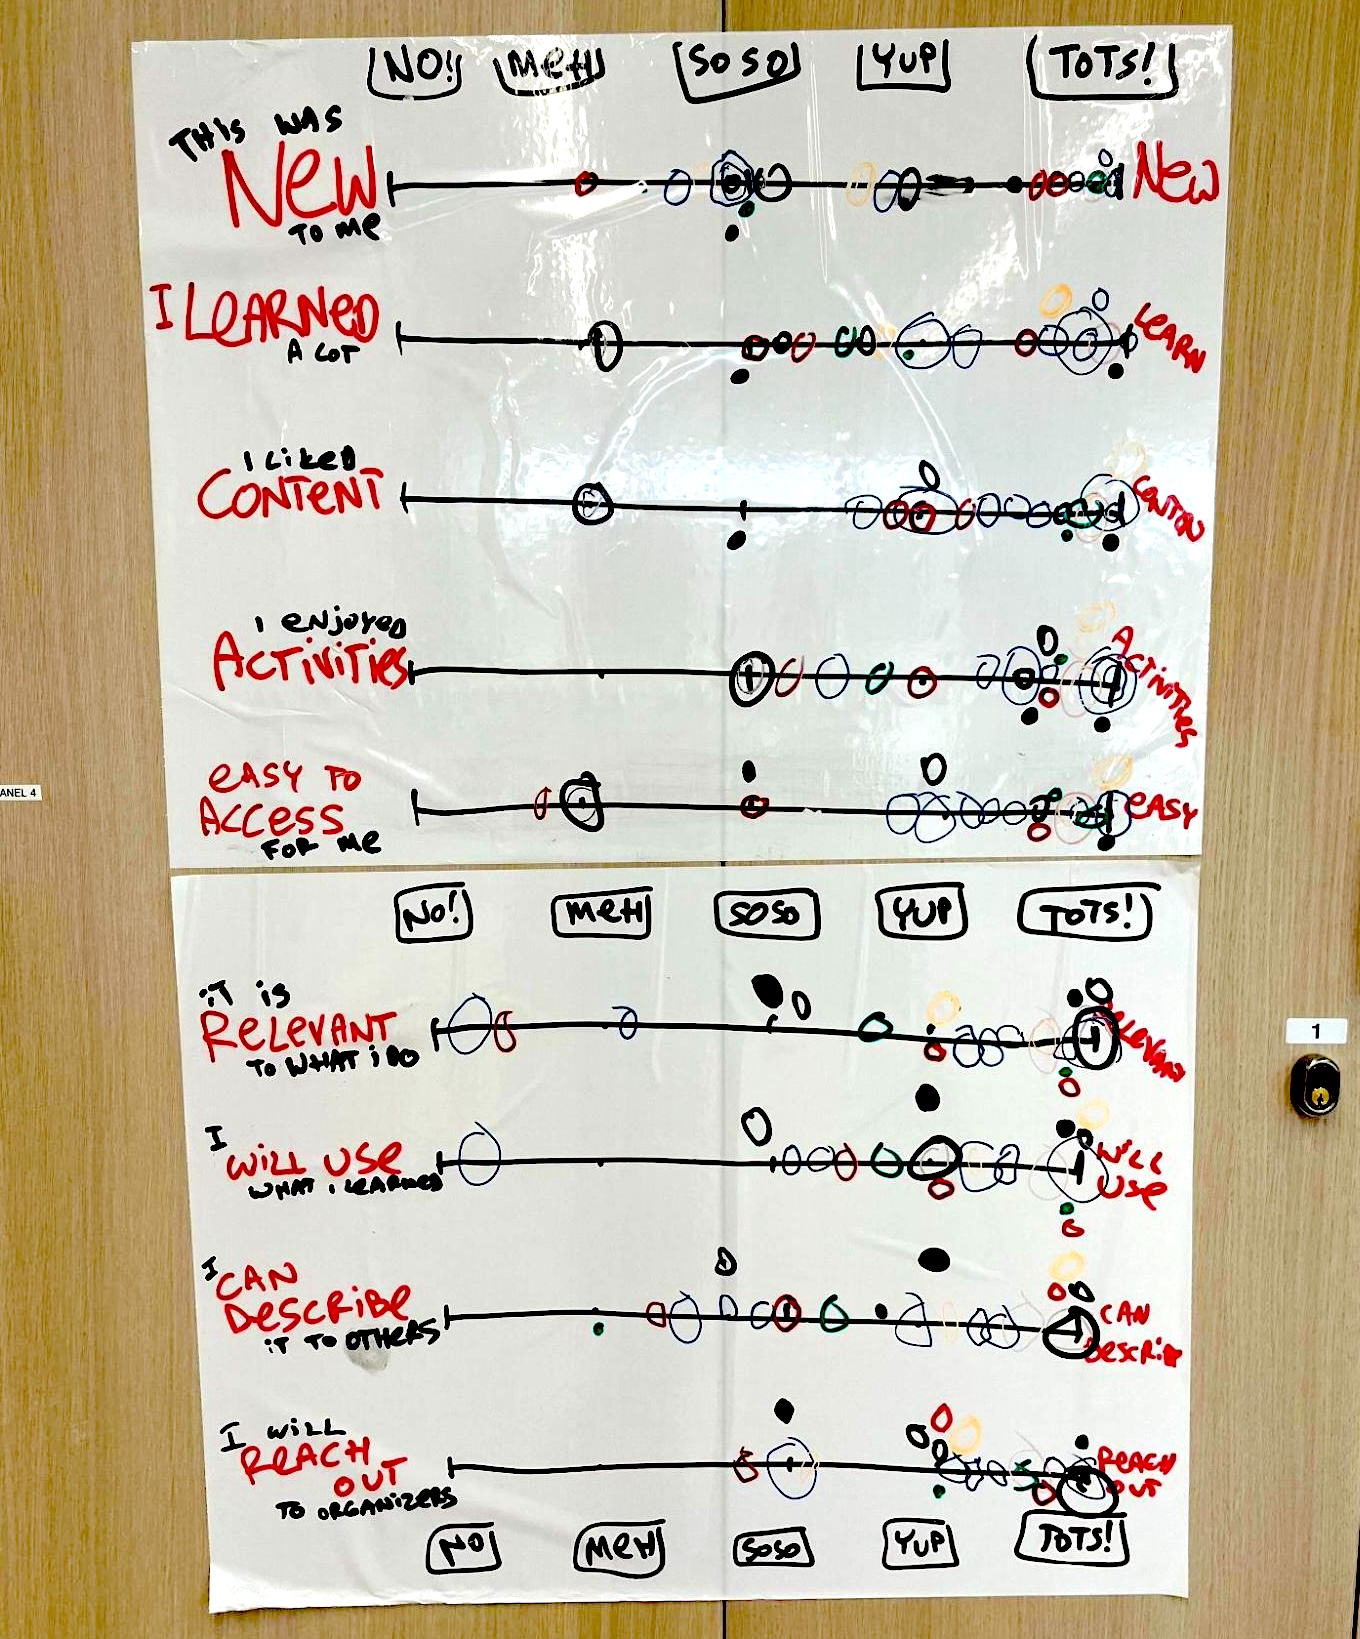 NO! MeH SO SO YUP TOTS!
THIS WAS
New
TO Me
New
I LeARNeD
A LOT
LeARN
I LIKeD
CONTeNT
I eNjoyeD
ACTiViTies
ACTiViTies
eASY TO
ACCeSS
FOR Me
eASY
ANEL 4
NO! MeH SOSO YUP TOTS!
iT is
ReLeVANT
TO WHAT i DO
ReLeVANT
1
I
WiLL USe
WHAT i LeARNeD
WiLL
USe
I
CAN
DeSCRiBe
iT TO OTHeRS
CAN
I WiLL
ReACH
OUT
TO ORGANiZeRS
ReACH
OUT
NO MeH SOSO YUP TOTS!